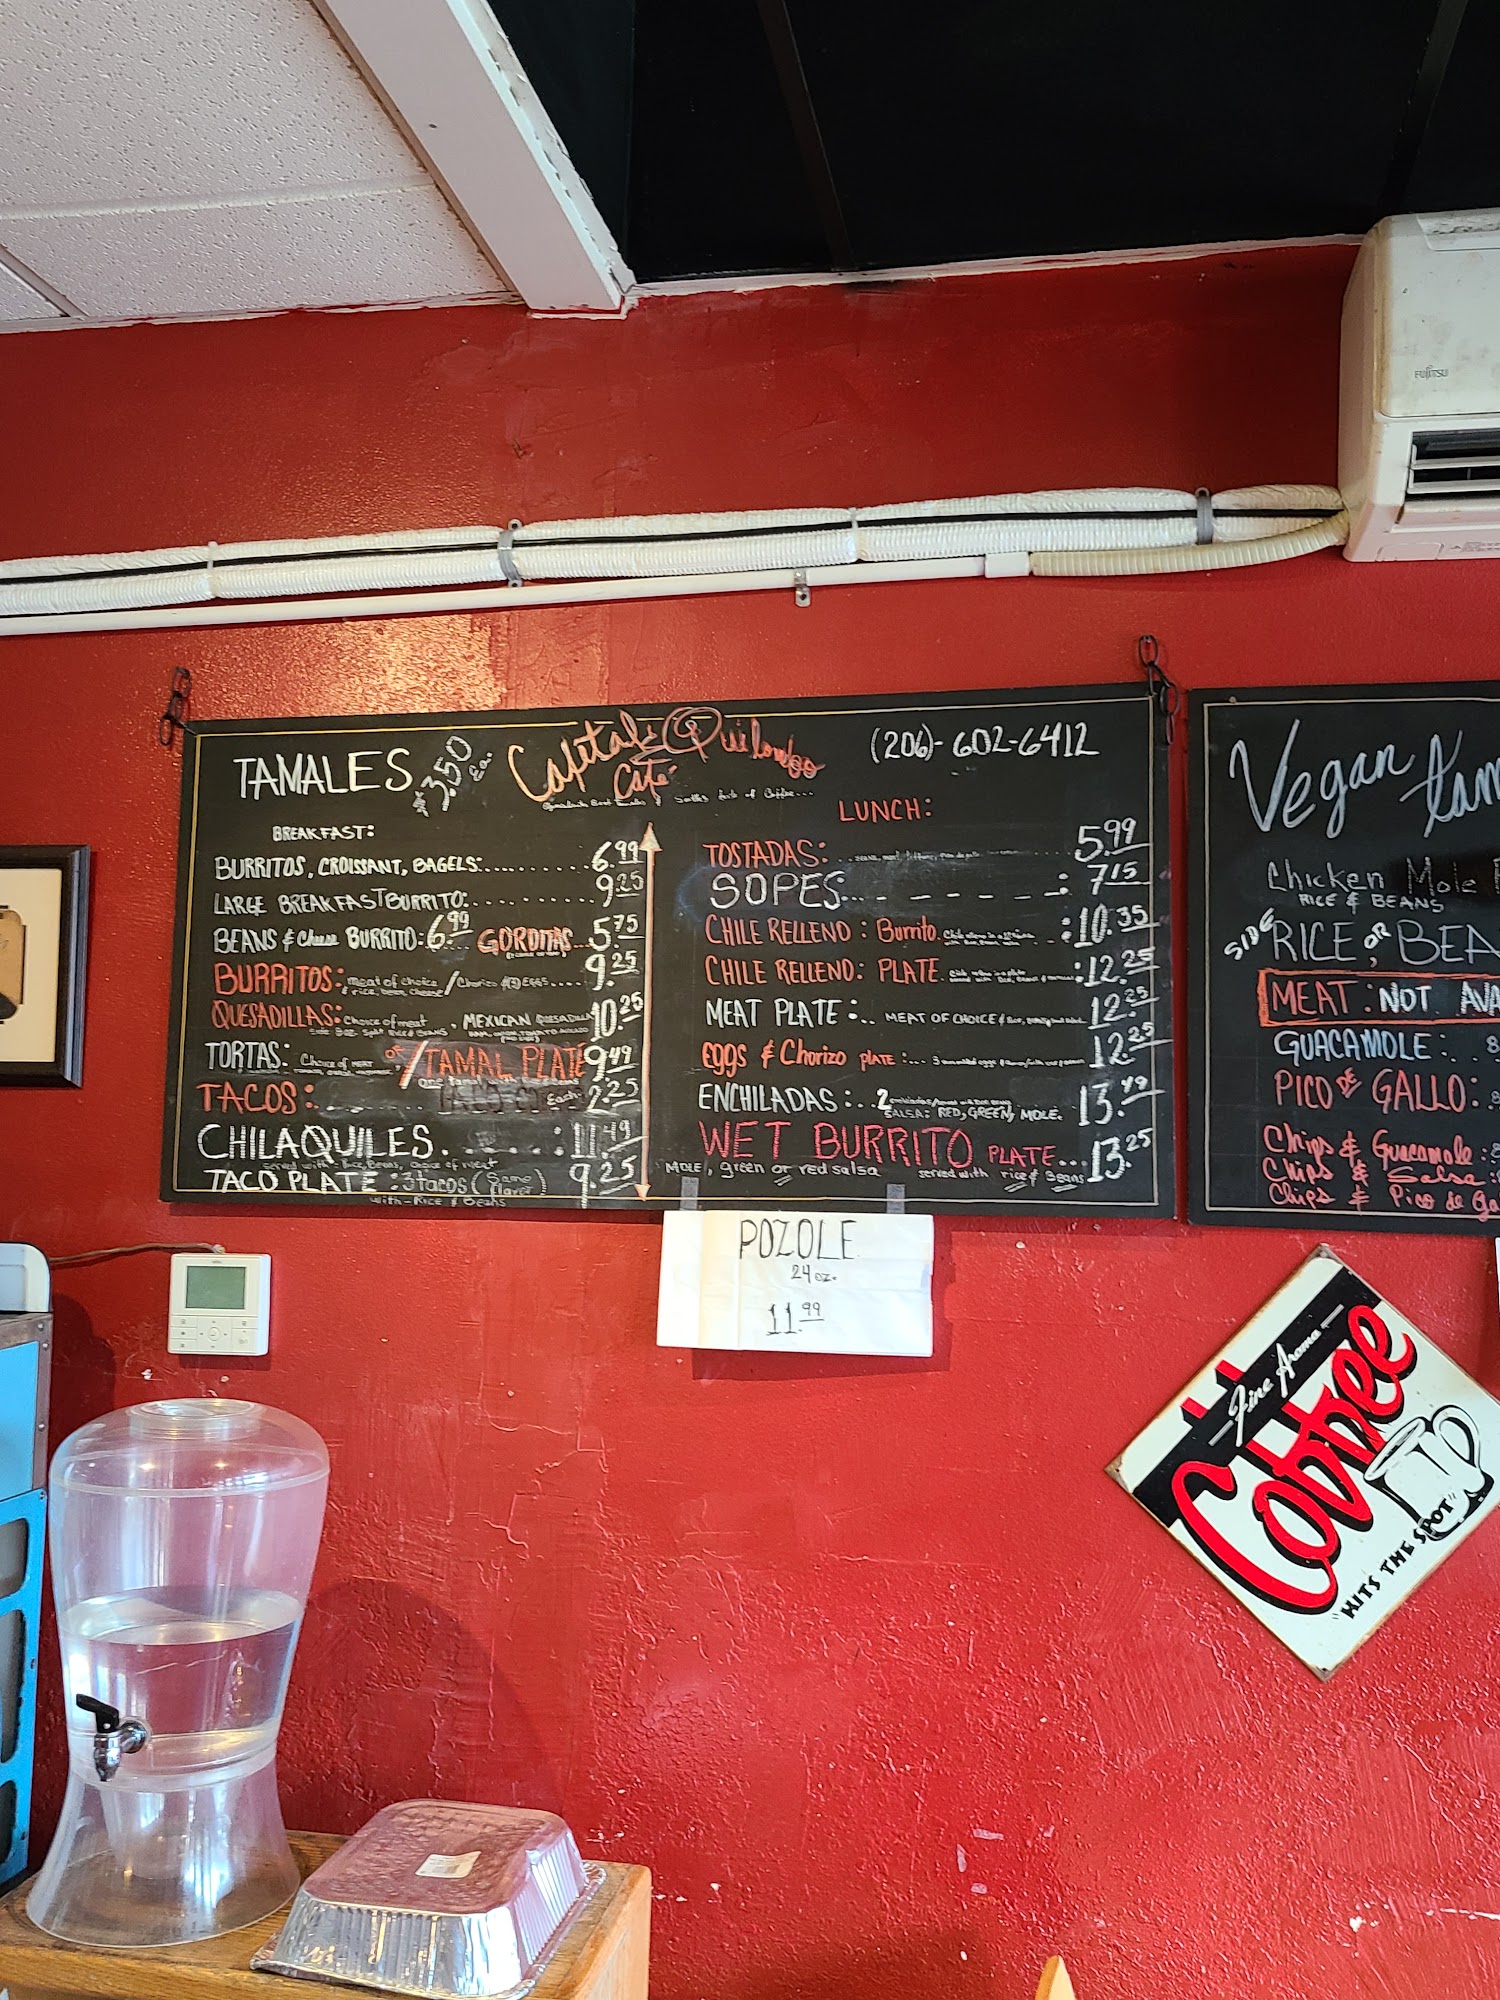 TAMALES 3.50 ea.
(206)-602-6412
Café
BREAKFAST:
BURRITOS, CROISSANT, BAGELS:...... 6.99
LARGE BREAKFAST BURRITO:.......... 9.25
BEANS & Cheese BURRITO: 6.99 GORDITAS... 5.75
BURRITOS: meat of choice / Chorizo & EGGS.... 9.25
& rice, bean, cheese
QUESADILLAS: choice of meat, MEXICAN QUESADILLA 10.25
TORTAS: Choice of MEAT OR / TAMAL PLATE 9.49
TACOS: Each 2.25
CHILAQUILES. . . . . : 11.49
served with - Rice, Beans, choice of meat
TACO PLATE : 3 tacos (Same flavor) 9.25
with - Rice & Beans
LUNCH:
TOSTADAS: 5.99
SOPES 7.15
CHILE RELLENO : Burrito :10.35
CHILE RELLENO: PLATE :12.25
MEAT PLATE :.. MEAT OF CHOICE & Rice, 12.25
EGGS & Chorizo PLATE :... 12.25
ENCHILADAS:.. 2 13.49
SALSA: RED, GREEN, MOLE.
WET BURRITO PLATE... 13.25
MOLE, green or red salsa served with rice & Beans
POZOLE
24 oz.
11.99
Vegan
Chicken Mole
RICE & BEANS
SIDE RICE OR BEA
MEAT: NOT AVA
GUACAMOLE: 8
PICO DE GALLO:
Chips & Guacamole :
Chips & Salsa :
Chips & Pico de Ga
FUJITSU
Fine Aroma
Coffee
"HITS THE SPOT"